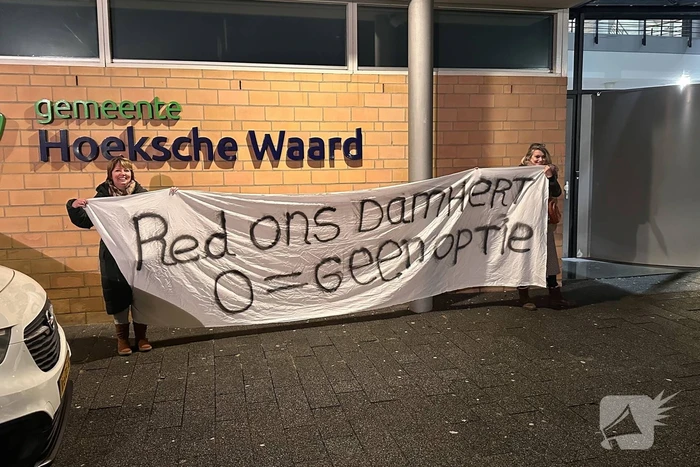 gemeente
Hoeksche Waard
Red ons DamHERT
0 = Geen optie